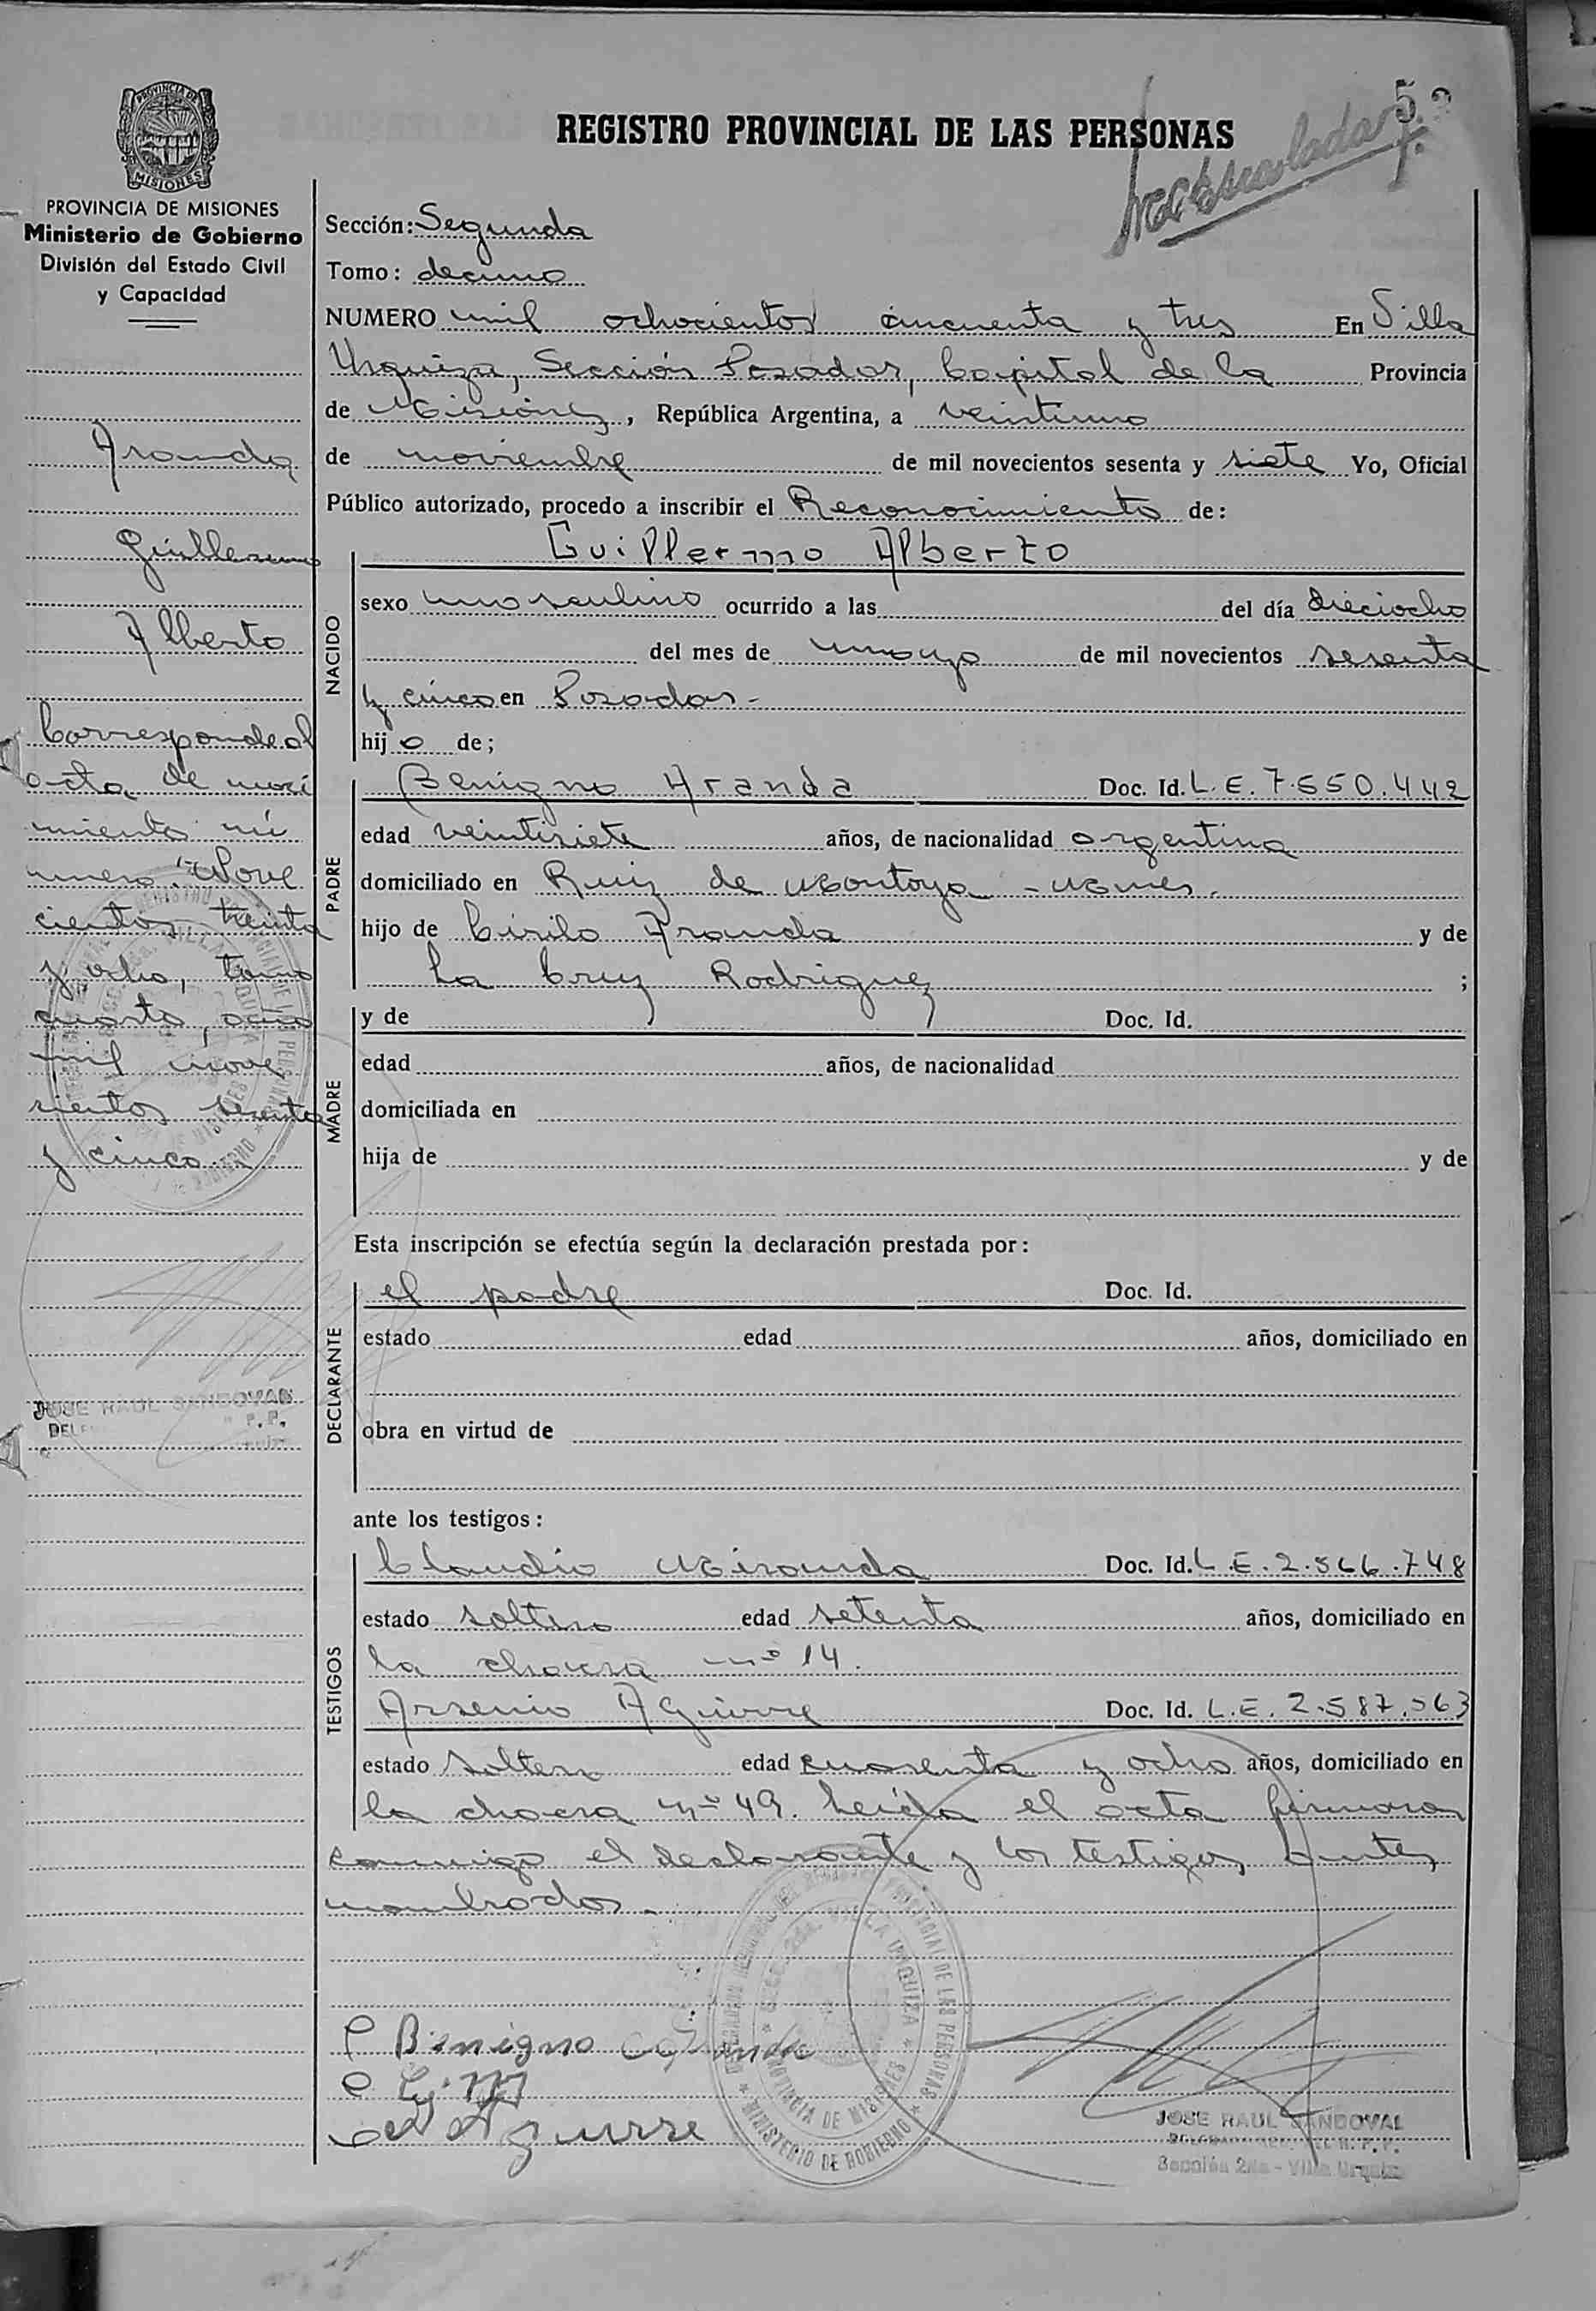 REGISTRO PROVINCIAL DE LAS PERSONAS
PROVINCIA DE MISIONES
Ministerio de Gobierno
División del Estado Civil
y Capacidad
Aranda
Guillermo
Alberto
Corresponde al
acta de naci
miento nú
mero Nove
cientos treinta
y ocho, tomo
cuarto, año
mil nove
cientos sesenta
y cinco.
JOSE RAUL SANDOVAL
Sección: Segunda
Tomo: decimo
NUMERO mil ochocientos cincuenta y tres En Villa
Urquiza, Sección Posadas, Capital de la Provincia
de Misiones, República Argentina, a veintiuno
de noviembre de mil novecientos sesenta y siete Yo, Oficial
Público autorizado, procedo a inscribir el Reconocimiento de:
Guillermo Alberto
NACIDO
sexo masculino ocurrido a las del día dieciocho
del mes de mayo de mil novecientos sesenta
y cinco en Posadas -
hijo de;
PADRE
Benigno Aranda Doc. Id. L.E. 7.550.442
edad veintisiete años, de nacionalidad argentina
domiciliado en Ruiz de Montoya - Mnes.
hijo de Cirilo Aranda y de
La Cruz Rodriguez ;
MADRE
y de Doc. Id.
edad años, de nacionalidad
domiciliada en
hija de y de
Esta inscripción se efectúa según la declaración prestada por:
DECLARANTE
el padre Doc. Id.
estado edad años, domiciliado en
obra en virtud de
ante los testigos:
TESTIGOS
Claudio Miranda Doc. Id. L.E. 2.566.748
estado soltero edad setenta años, domiciliado en
la chacra nº 14.
Arsenio Aguirre Doc. Id. L.E. 2.587.563
estado soltero edad cuarenta y ocho años, domiciliado en
la chacra nº 49. Leída el acta firmaron
conmigo el declarante y los testigos antes
nombrados.
Benigno Aranda
Aguirre
VILLA URQUIZA
PROVINCIA DE MISIONES
MINISTERIO DE GOBIERNO
JOSE RAUL SANDOVAL
Sección 2da - Villa Urquiza